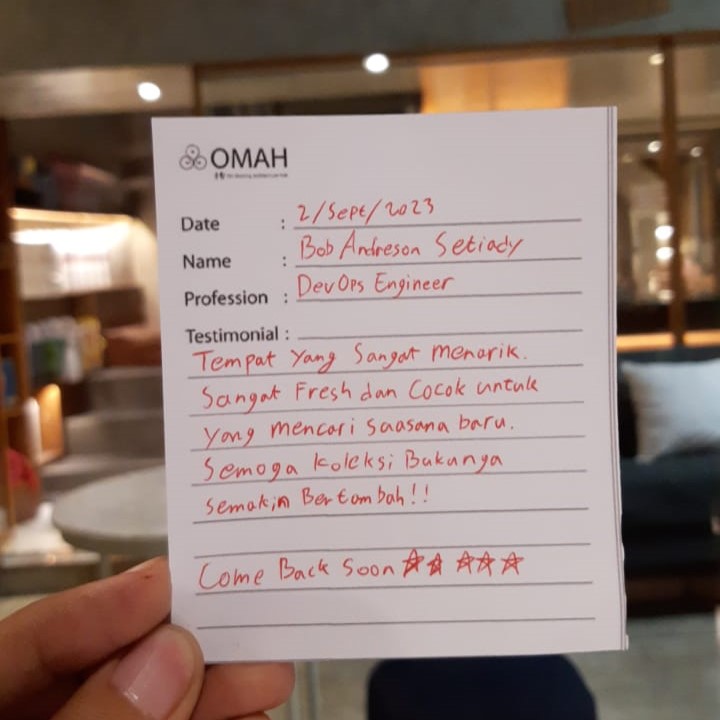 OMAH
Date : 2/Sept/2023
Name : Bob Andreson Setiady
Profession : DevOps Engineer
Testimonial :
Tempat Yang Sangat Menarik.
Sangat Fresh dan Cocok untuk
yang mencari suasana baru.
Semoga koleksi Bukunya
Semakin Bertambah!!
Come Back Soon ☆☆ ☆☆☆